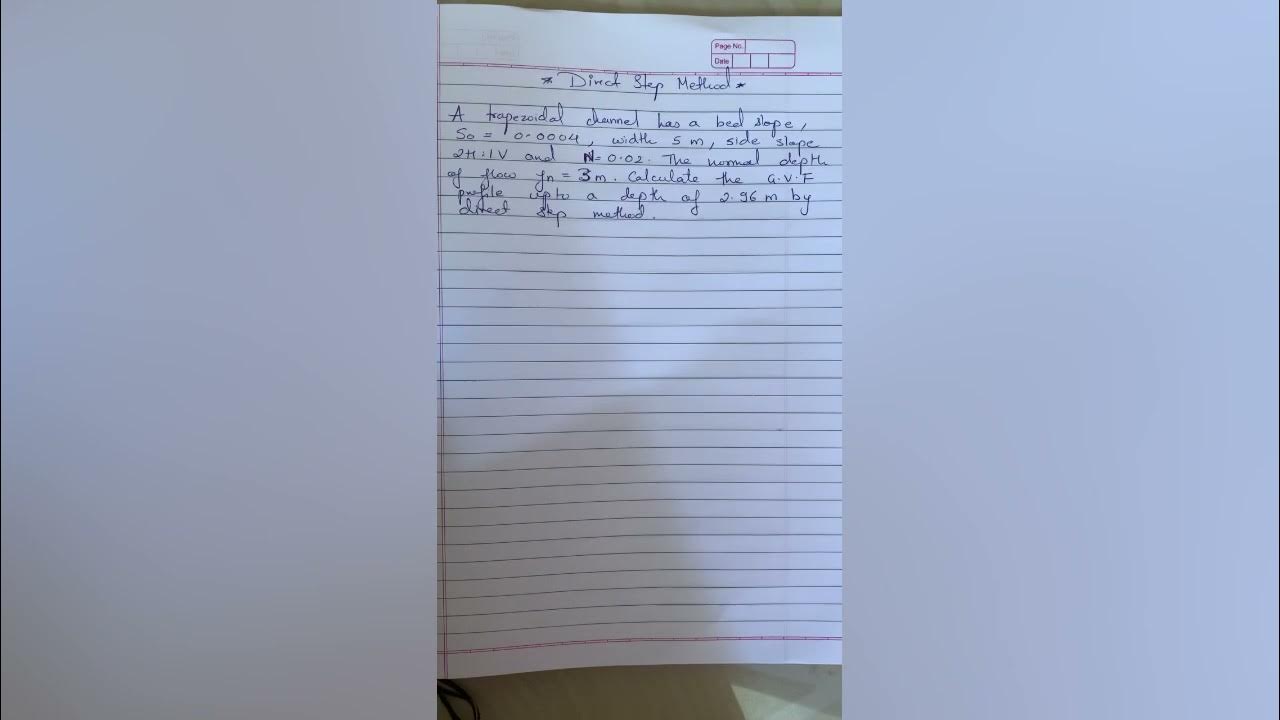 Page No.
Date
* Direct Step Method *
A trapezoidal channel has a bed slope,
So = 0.0004, width 5 m, side slope
2H:1V and N=0.02. The normal depth
of flow yn = 3 m. Calculate the G.V.F
profile upto a depth of 2.96 m by
direct step method.